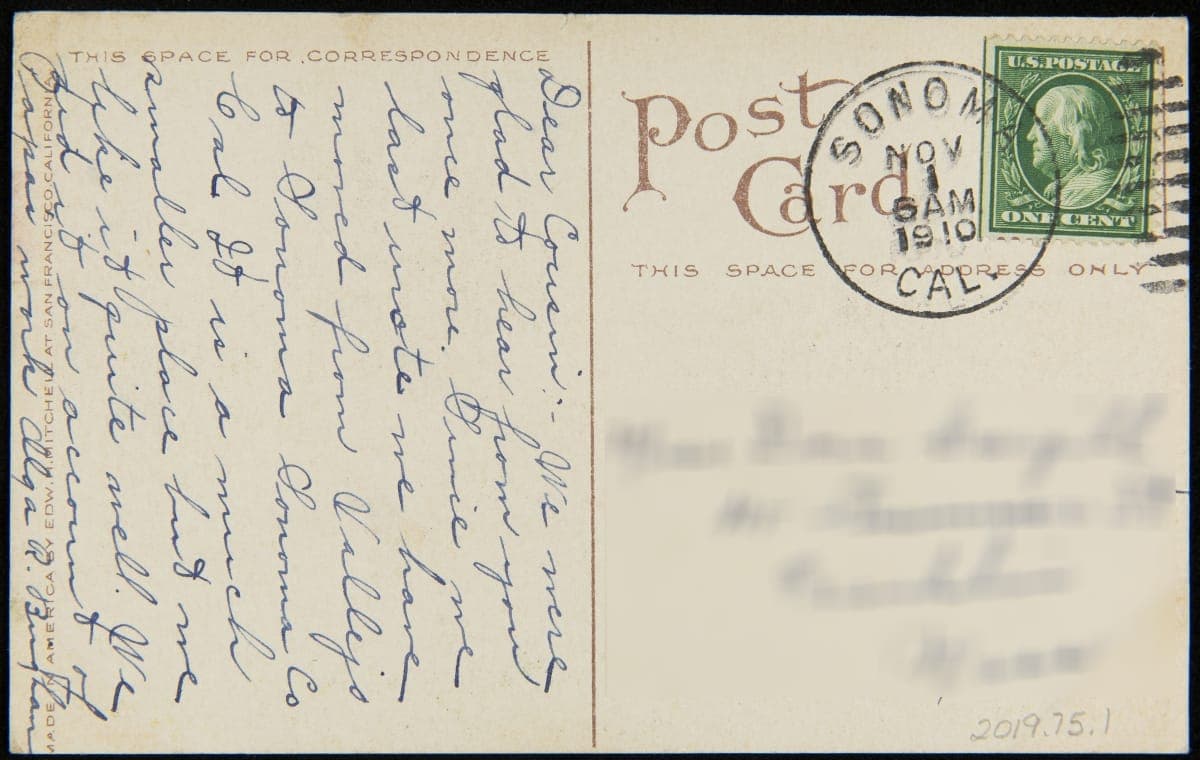 THIS SPACE FOR CORRESPONDENCE
Dear Cousin:- We were
glad to hear from you
once more. Since we
last wrote we have
moved from Vallejo
to Sonoma Sonoma Co
Cal It is a much
smaller place but we
like it quite well. We
did it on account of
Papas work Olga R.
MADE IN AMERICA BY EDW. H. MITCHELL AT SAN FRANCISCO, CALIFORNIA
Post
Card
THIS SPACE FOR ADDRESS ONLY
SONOMA
NOV
1
6AM
1910
CAL.
U.S. POSTAGE
ONE CENT
2019.75.1